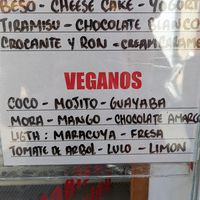 BESO - CHEESE CAKE - YOGURT
TIRAMISU - CHOCOLATE BLANCO
CROCANTE Y RON - CREAM CARAMEL
VEGANOS
COCO - MOJITO - GUAYABA
MORA - MANGO - CHOCOLATE AMARGO
LIGTH : MARACUYA - FRESA
TOMATE DE ARBOL - LULO - LIMON